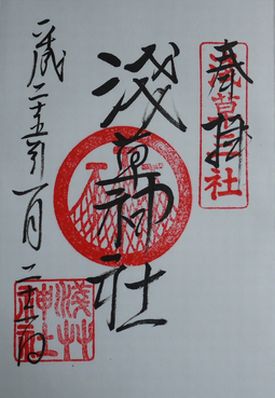 奉拝
淺草神社
淺草神社
平成二十五年一月二十日
淺艸神社